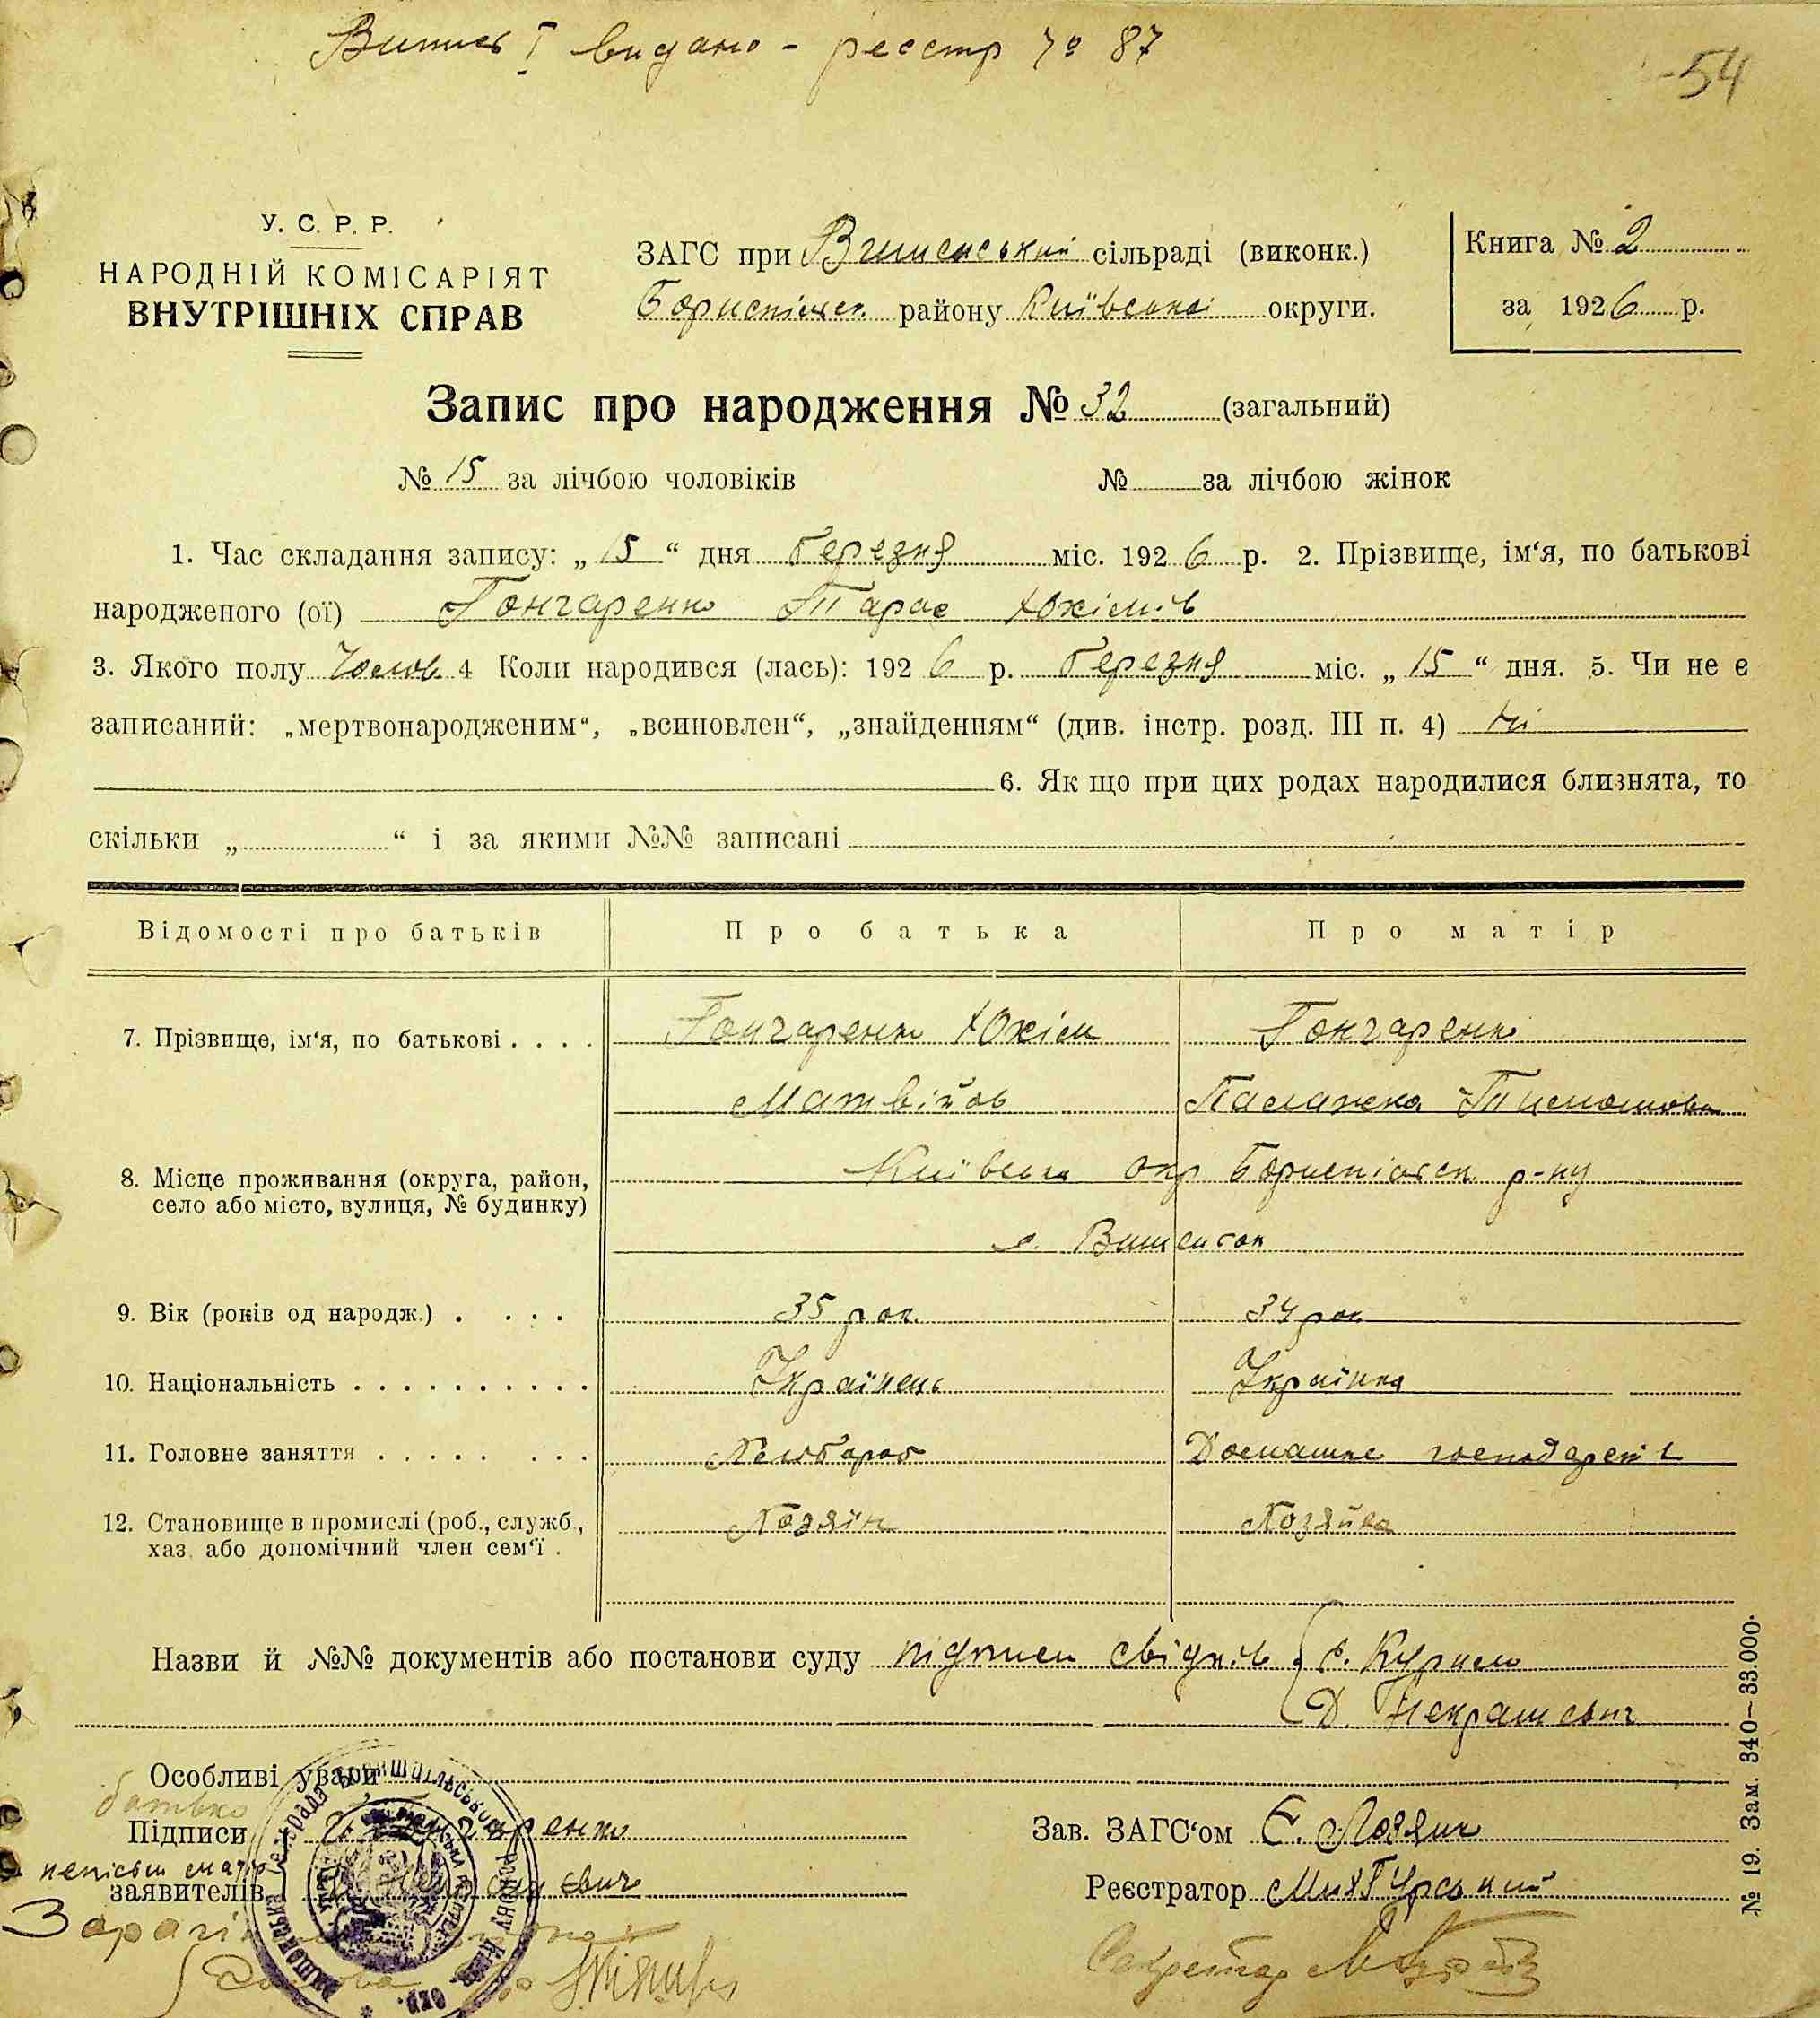 Випись І видано - реєстр № 87
54
У. С. Р. Р.
НАРОДНІЙ КОМІСАРІЯТ
ВНУТРІШНІХ СПРАВ
ЗАГС при Вишенський сільраді (виконк.)
Бориспільск. району Київської округи.
Книга № 2
за 1926 р.
Запис про народження № 32 (загальний)
№ 15 за лічбою чоловіків № за лічбою жінок
1. Час складання запису: „15“ дня березня міс. 1926 р. 2. Прізвище, ім‘я, по батькові
народженого (ої) Гончаренко Тарас Юхімів
3. Якого полу Чолов. 4 Коли народився (лась): 1926 р. березня міс. „15“ дня. 5. Чи не є
записаний: „мертвонародженим“, „всиновлен“, „знайденням“ (див. інстр. розд. III п. 4) ні
6. Як що при цих родах народилися близнята, то
скільки „ “ і за якими №№ записані
Відомості про батьків Про батька Про матір
7. Прізвище, ім‘я, по батькові . . . . Гончаренко Юхім Гончаренко
Матвійов Палажка Тимошова
8. Місце проживання (округа, район, Київська окр Бориспільск. р-ну
село або місто, вулиця, № будинку)
с. Вишеньок
9. Вік (років од народж.) . . . . 35 рок. 34 рок
10. Національність . . . . . . . . . . Українець Українка
11. Головне заняття . . . . . . . . Хлібороб Домашнє господарст
12. Становище в промислі (роб., служб., Хозяїн Хозяйка
хаз. або допомічний член сем‘ї .
Назви й №№ документів або постанови суду підписи свідків
Д. Некрашевич
Особливі уваги
батько
Підписи Гончаренко
заявителів
Зав. ЗАГС‘ом Є. Лозян
Реєстратор
Секретар
№ 19. Зам. 340—33.000.